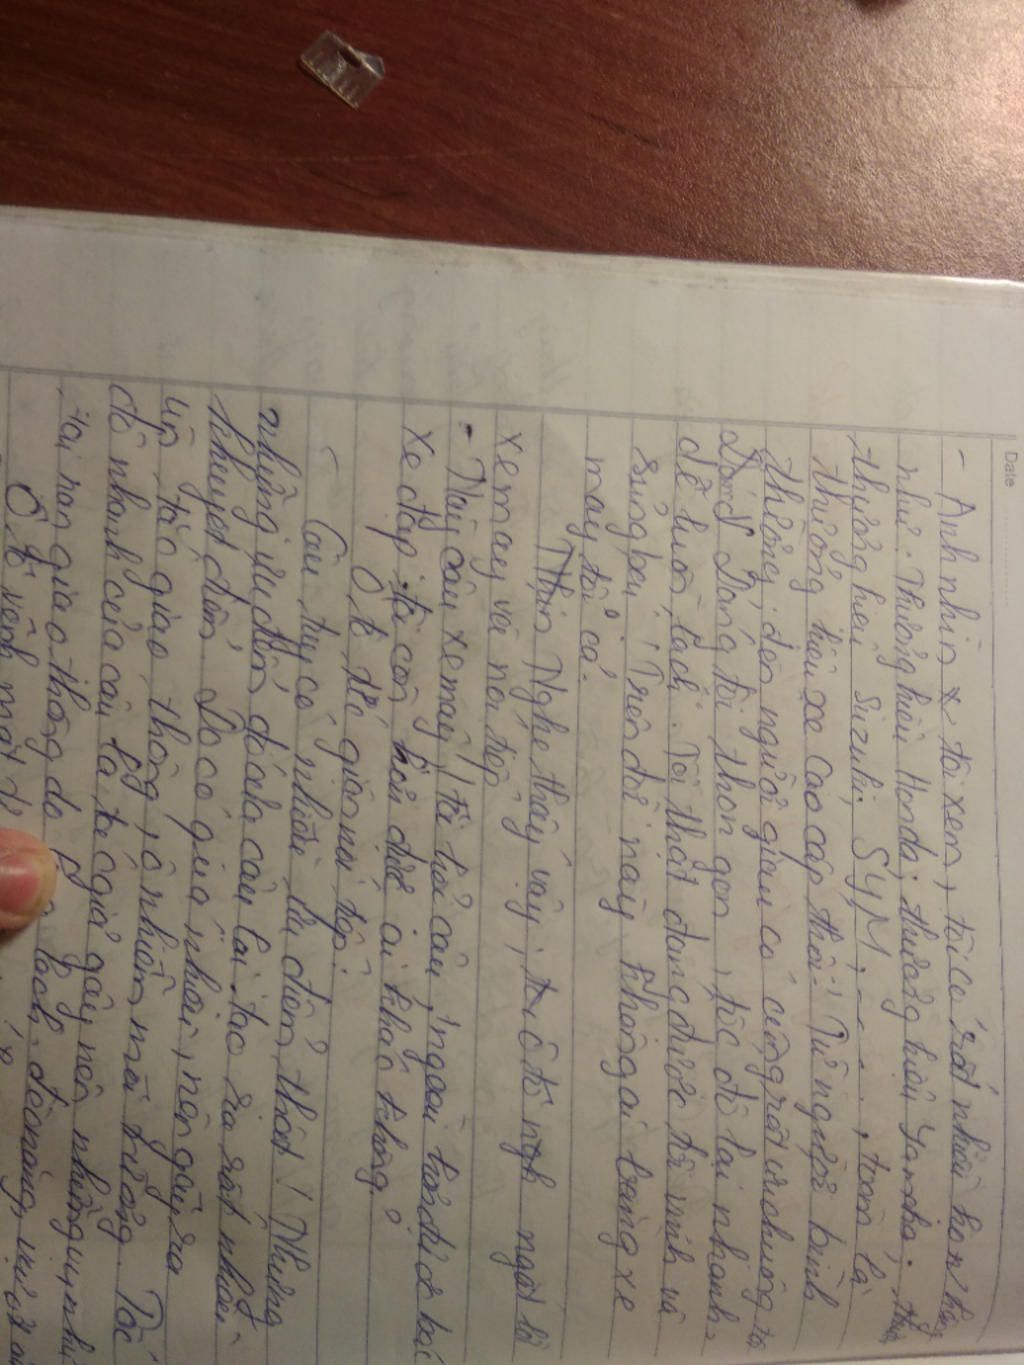 Date
- Anh nhìn tôi xem, tôi có rất nhiều hãng
như. Thương hiệu Honda; thương hiệu Yamaha.
thương hiệu Suzuki; SYM, - - - -, toàn là
thương hiệu xe cao cấp thôi! Từ người bình
thường, đến người giàu có cũng rất ưa chuộng tôi
Dáng tôi thon gọn, tốc độ lại nhanh,
dễ luồn lách. Tôi thật đáng được tôi vinh và
sùng bái! Trên đời này không ai bằng xe
máy tôi cả.
Thìn Nghe thấy vậy, ô tô ngh ngắt lời
xe máy và nói tiếp
- Này cậu xe máy! tôi hỏi cậu, ngoài hơn được bác
xe đạp, cậu còn hơn được ai khác không?
Ô tô tức giận nói tiếp:
- Cậu tuy có nhiều ưu điểm thật! Nhưng
những ưu điểm đó của cậu lại tạo ra rất nhiều
khuyết điểm. Do có giá nhoài, nên gây ra
ùn tắc giao thông, ô nhiễm môi trường. Tốc
độ nhanh của cậu là tác giả gây nên những vụ
tai nạn giao thông do lách, đánh võng,
Ô tô vênh mặt